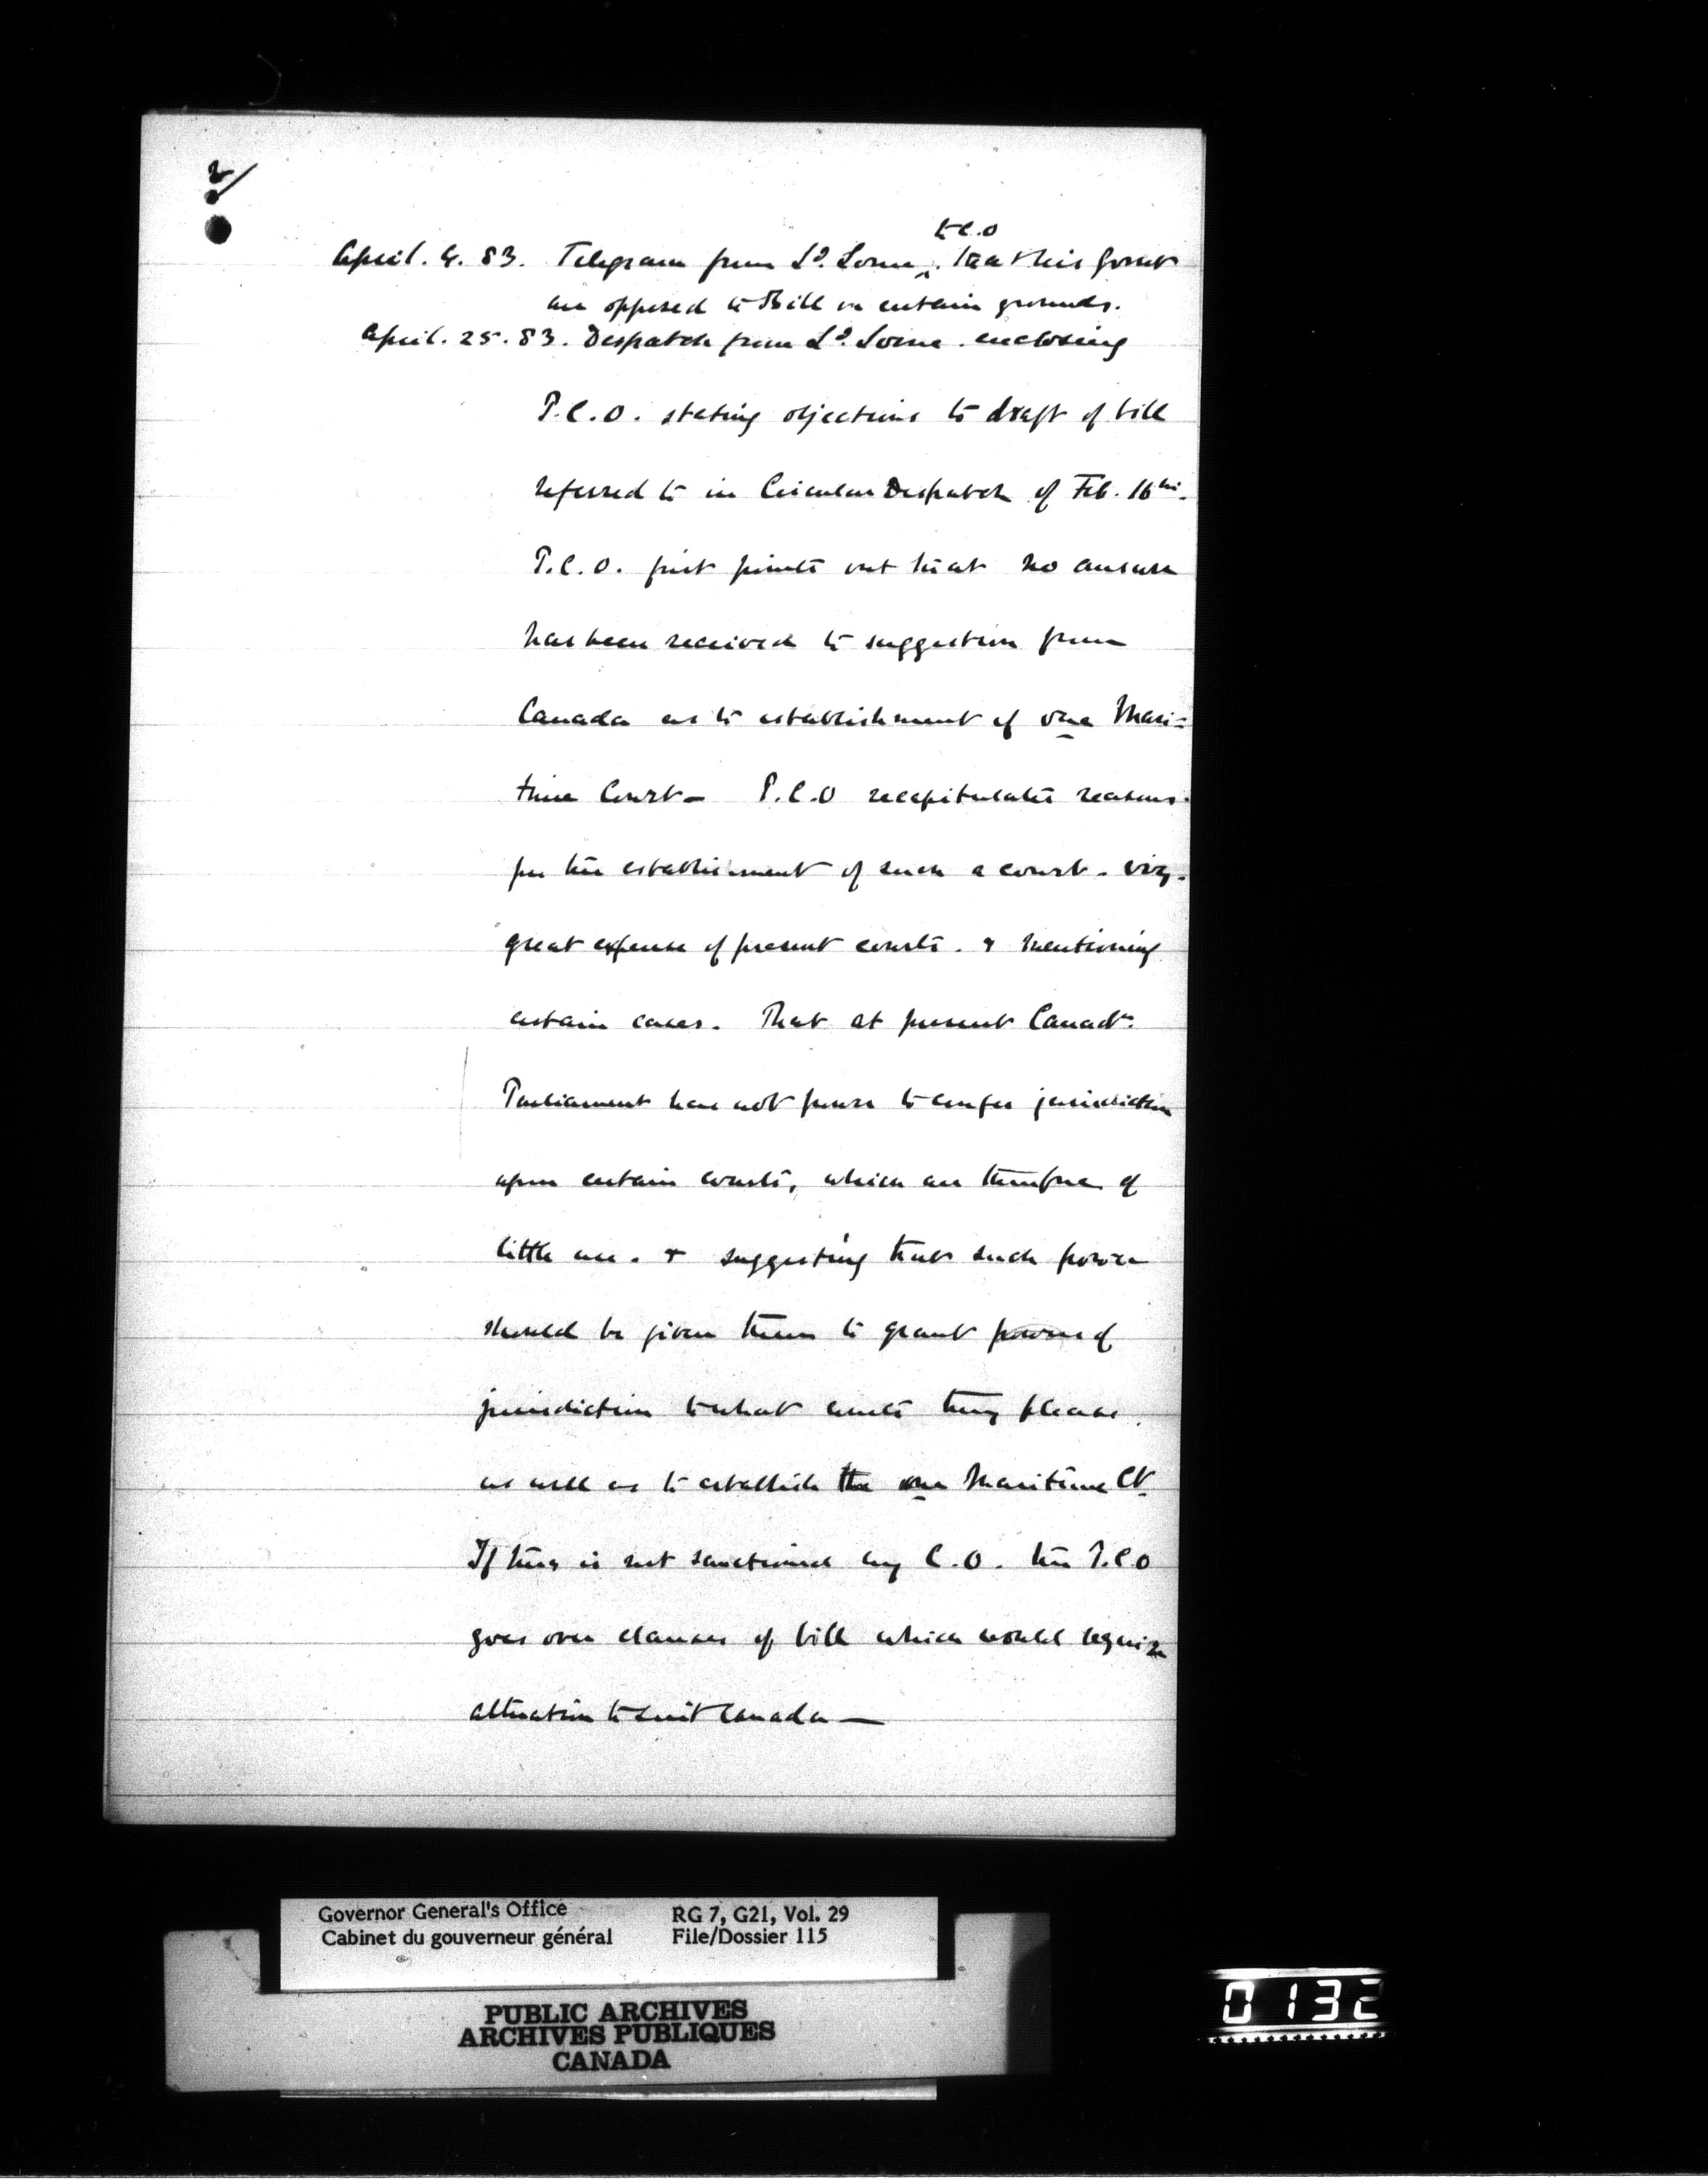 2/
to C.O
April. 4. 83. Telegram from Ld. Lorne ^. that his Govmt
are opposed to Bill on certain grounds.
April. 25. 83. Despatch from Ld. Lorne. enclosing
P.C.O. stating objections to draft of bill
referred to in Circular Despatch of Feb. 16th.
P.C.O. first points out that no answer
has been received to suggestion from
Canada as to establishment of one Mari=
time Court— P.C.O recapitulates reasons.
for the establishment of such a court. viz.
great expense of present courts. & mentioning
certain cases. That at present Canadn.
Parliament have not power to confer jurisdiction
upon certain courts, which are therefore of
little use. & suggesting that such power
should be given them to grant power of
jurisdiction to what courts they please.
as well as to establish the one Maritime Ct.
If this is not sanctioned by C.O. the P.C.O
goes over clauses of bill which would require
alteration to suit Canada—
Governor General's Office RG 7, G21, Vol. 29
Cabinet du gouverneur général File/Dossier 115
PUBLIC ARCHIVES
ARCHIVES PUBLIQUES
CANADA
0132